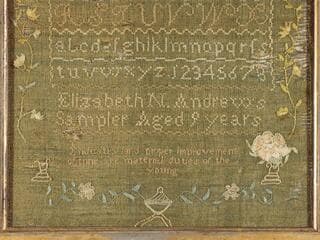 R S T U V W X
abcdefghiklmnopqrſs
tuvwxyz.12345678
Elizabeth N. Andrews
Sampler Aged 9 years
and proper improvement
of time are material duties of the
young